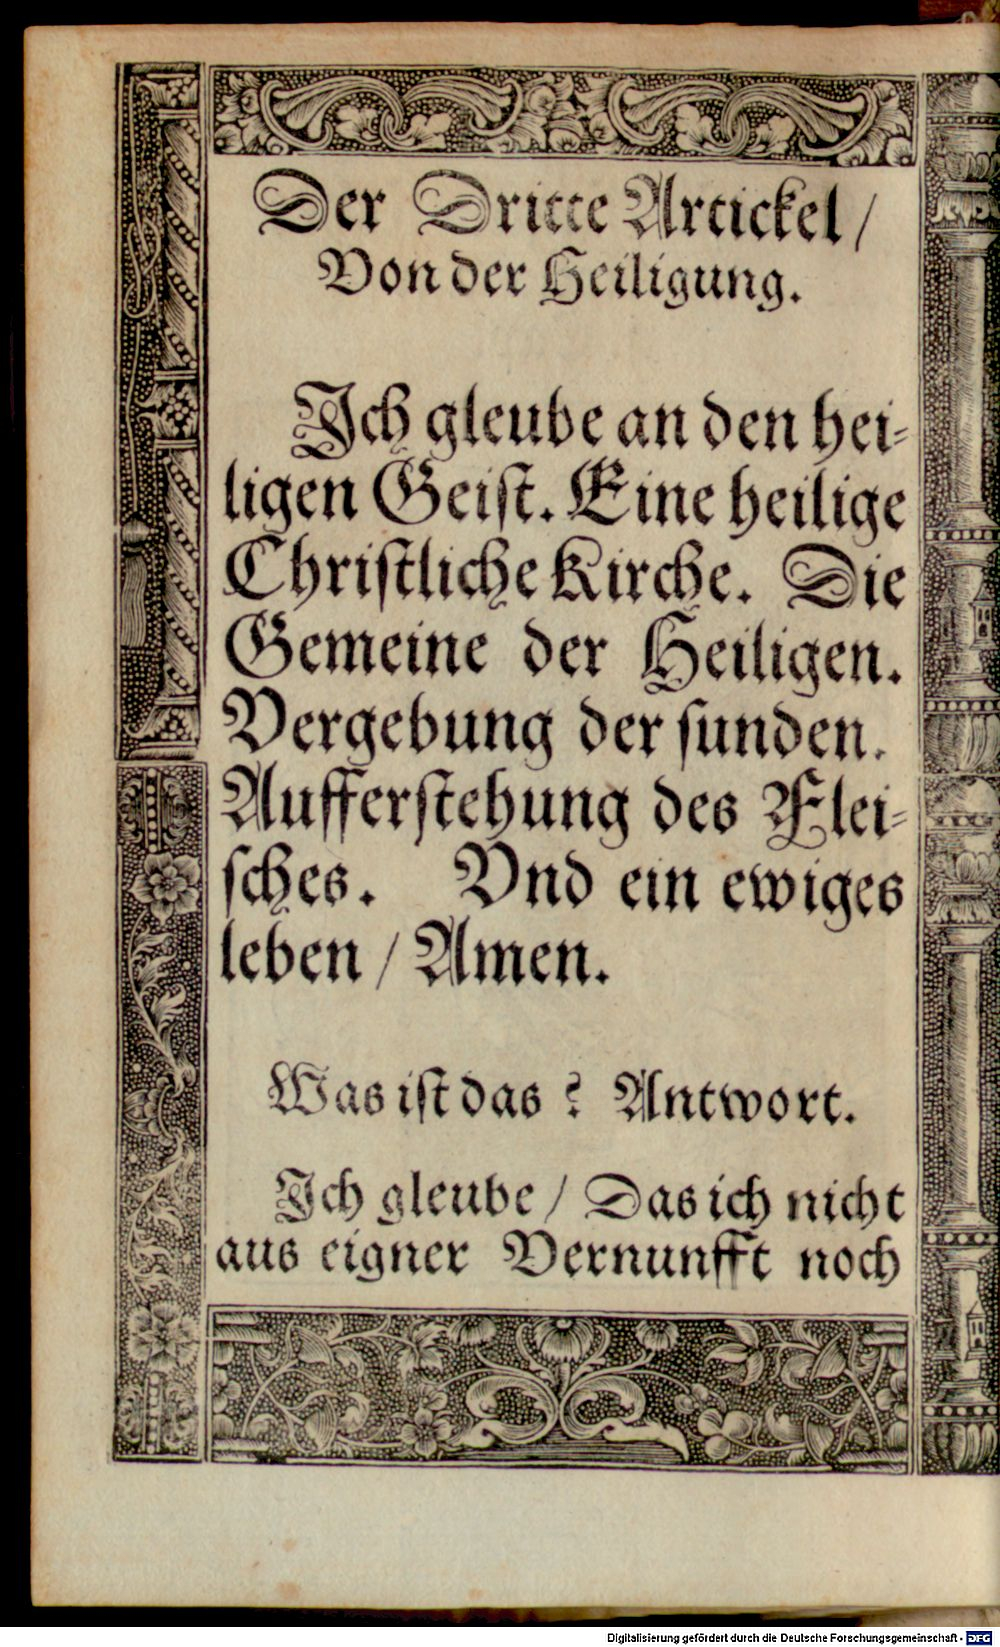 Der Dritte Artickel /
Von der Heiligung.
Ich gleube an den hei-
ligen Geiſt. Eine heilige
Chriſtliche Kirche. Die
Gemeine der Heiligen.
Vergebung der ſunden.
Aufferſtehung des Flei-
ſches. Vnd ein ewiges
leben / Amen.
Was iſt das? Antwort.
Ich gleube / Das ich nicht
aus eigner Vernunfft noch
Digitalisierung gefördert durch die Deutsche Forschungsgemeinschaft - DFG